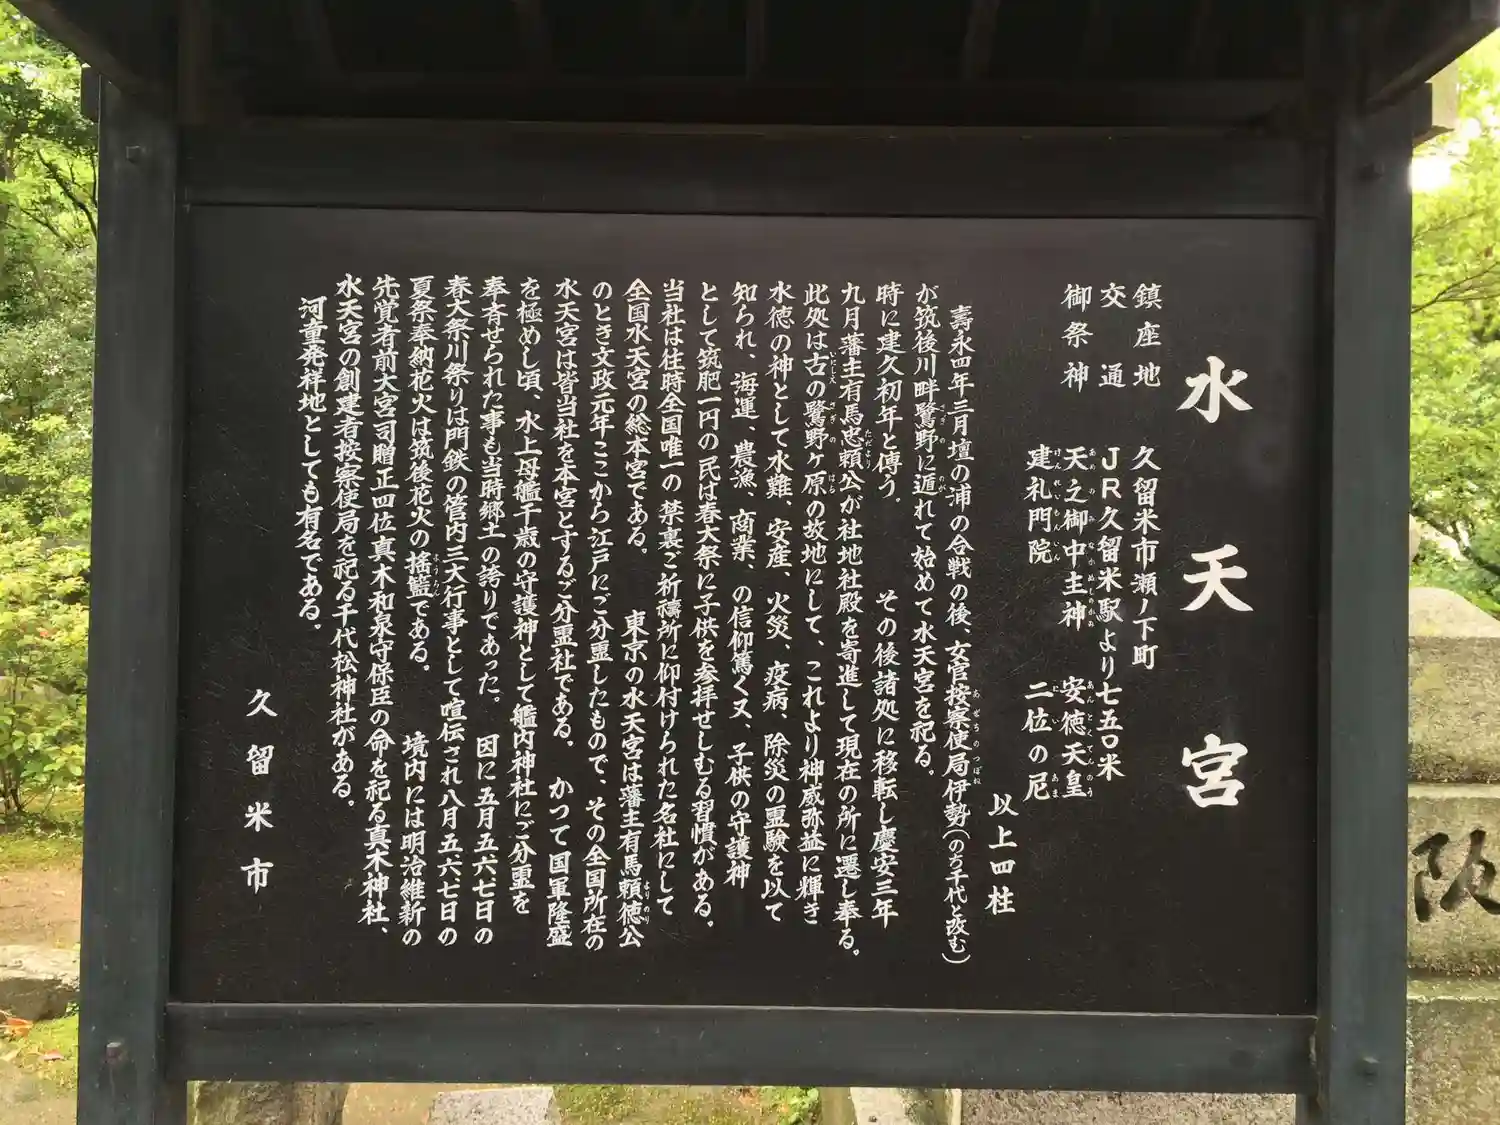 水天宮
鎮座地 久留米市瀬ノ下町
交通 JR久留米駅より七五〇米
御祭神 天之御中主神 安徳天皇
建礼門院 二位の尼
以上四柱
壽永四年三月壇の浦の合戦の後、女官按察使局伊勢(のち千代と改む)
が筑後川畔鷺野に遁れて始めて水天宮を祀る。
時に建久初年と傳う。 その後諸処に移転し慶安三年
九月藩主有馬忠頼公が社地社殿を寄進して現在の所に遷し奉る。
此処は古の鷺野ヶ原の故地にして、これより神威弥益に輝き
水徳の神として水難、安産、火災、疫病、除災の霊験を以て
知られ、海運、農漁、商業、の信仰篤く又、子供の守護神
として筑肥一円の民は春大祭に子供を参拝せしむる習慣がある。
当社は往時全国唯一の禁裏ご祈禱所に仰付けられた名社にして
全国水天宮の総本宮である。 東京の水天宮は藩主有馬頼徳公
のとき文政元年ここから江戸にご分霊したもので、その全国所在の
水天宮は皆当社を本宮とするご分霊社である。 かつて国軍隆盛
を極めし頃、水上母艦千歳の守護神として艦内神社にご分霊を
奉斉せられた事も当時郷土の誇りであった。 因に五月五六七日の
春大祭川祭りは門鉄の管内三大行事として喧伝され八月五六七日の
夏祭奉納花火は筑後花火の揺籃である。 境内には明治維新の
先覚者前大宮司贈正四位真木和泉守保臣の命を祀る真木神社、
水天宮の創建者按察使局を祀る千代松神社がある。
河童発祥地としても有名である。
久留米市
阪